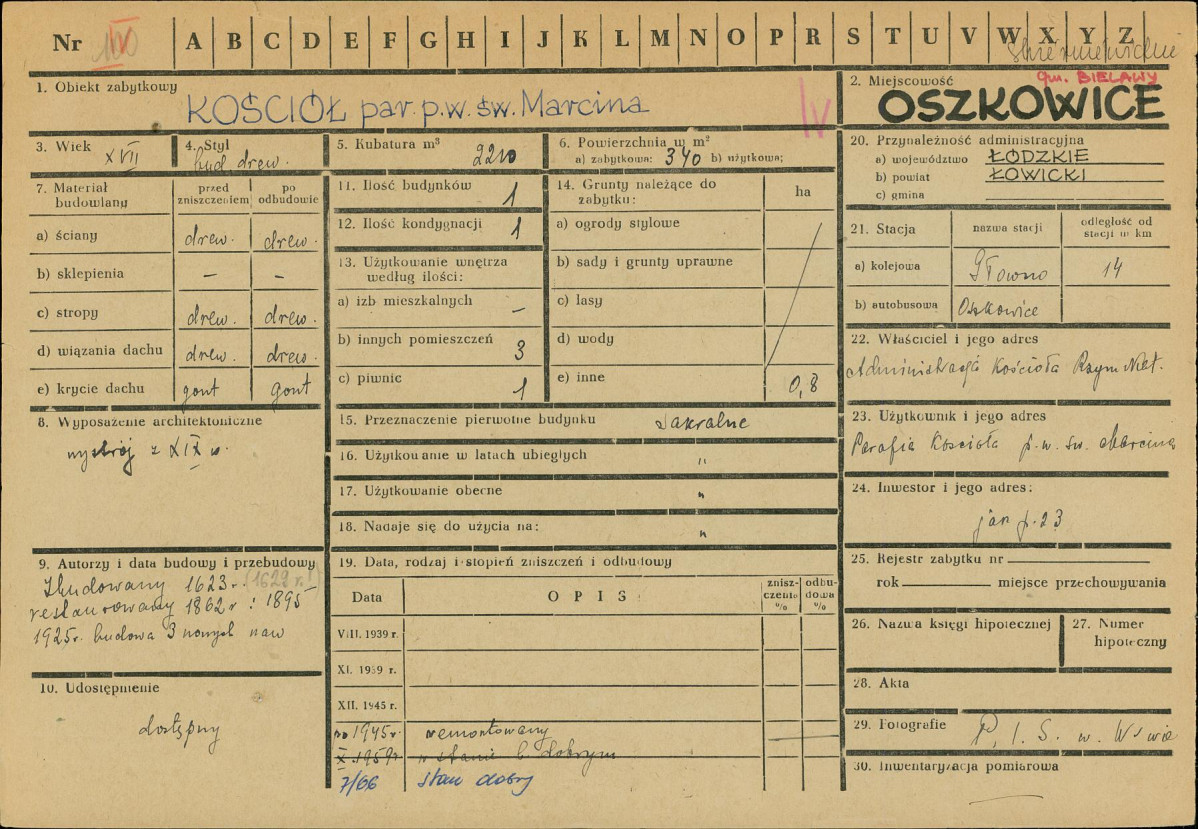 Nr IV A B C D E F G H I J K L M N O P R S T U V W X Y Z
Skierniewickie
1. Obiekt zabytkowy
KOŚCIÓŁ par. p.w. św. Marcina
IV
2. Miejscowość
gm. BIELAWY
OSZKOWICE
3. Wiek
XVII
4. Styl
bud. drew.
5. Kubatura m³
2210
6. Powierzchnia w m²
a) zabytkowa: 340 b) użytkowa;
7. Materiał budowlany
przed zniszczeniem
po odbudowie
a) ściany drew. drew.
b) sklepienia – –
c) stropy drew. drew.
d) wiązania dachu drew. drew.
e) krycie dachu gont gont
8. Wyposażenie architektoniczne
wystrój z XIX w.
9. Autorzy i data budowy i przebudowy
Zbudowany 1623 r. (1622 r!)
restaurowany 1862 r i 1895
1925 r. budowa 3 nowych naw
10. Udostępnienie
dostępny
11. Ilość budynków 1
12. Ilość kondygnacji 1
13. Użytkowanie wnętrza według ilości:
a) izb mieszkalnych –
b) innych pomieszczeń 3
c) piwnic 1
14. Grunty należące do zabytku:
ha
a) ogrody stylowe
b) sady i grunty uprawne
c) lasy
d) wody
e) inne 0,8
15. Przeznaczenie pierwotne budynku sakralne
16. Użytkowanie w latach ubiegłych "
17. Użytkowanie obecne "
18. Nadaje się do użycia na: "
19. Data, rodzaj i stopień zniszczeń i odbudowy
Data
OPIS
zniszczenie %
odbudowa %
VIII. 1939 r.
XI. 1939 r.
XII. 1945 r.
po 1945 r. remontowany
X. 1959 r. w stanie b. dobrym
7/66 stan dobry
20. Przynależność administracyjna
a) województwo ŁÓDZKIE
b) powiat ŁOWICKI
c) gmina
21. Stacja
nazwa stacji
odległość od stacji w km
a) kolejowa Głowno 14
b) autobusowa Oszkowice
22. Właściciel i jego adres
Administracja Kościoła Rzym. Kat.
23. Użytkownik i jego adres
Parafia Kościoła p.w. św. Marcina
24. Inwestor i jego adres:
jan p. 23
25. Rejestr zabytku nr
rok miejsce przechowywania
26. Nazwa księgi hipotecznej
27. Numer hipoteczny
28. Akta
29. Fotografie P. I. S. w. W-wie
30. Inwentaryzacja pomiarowa